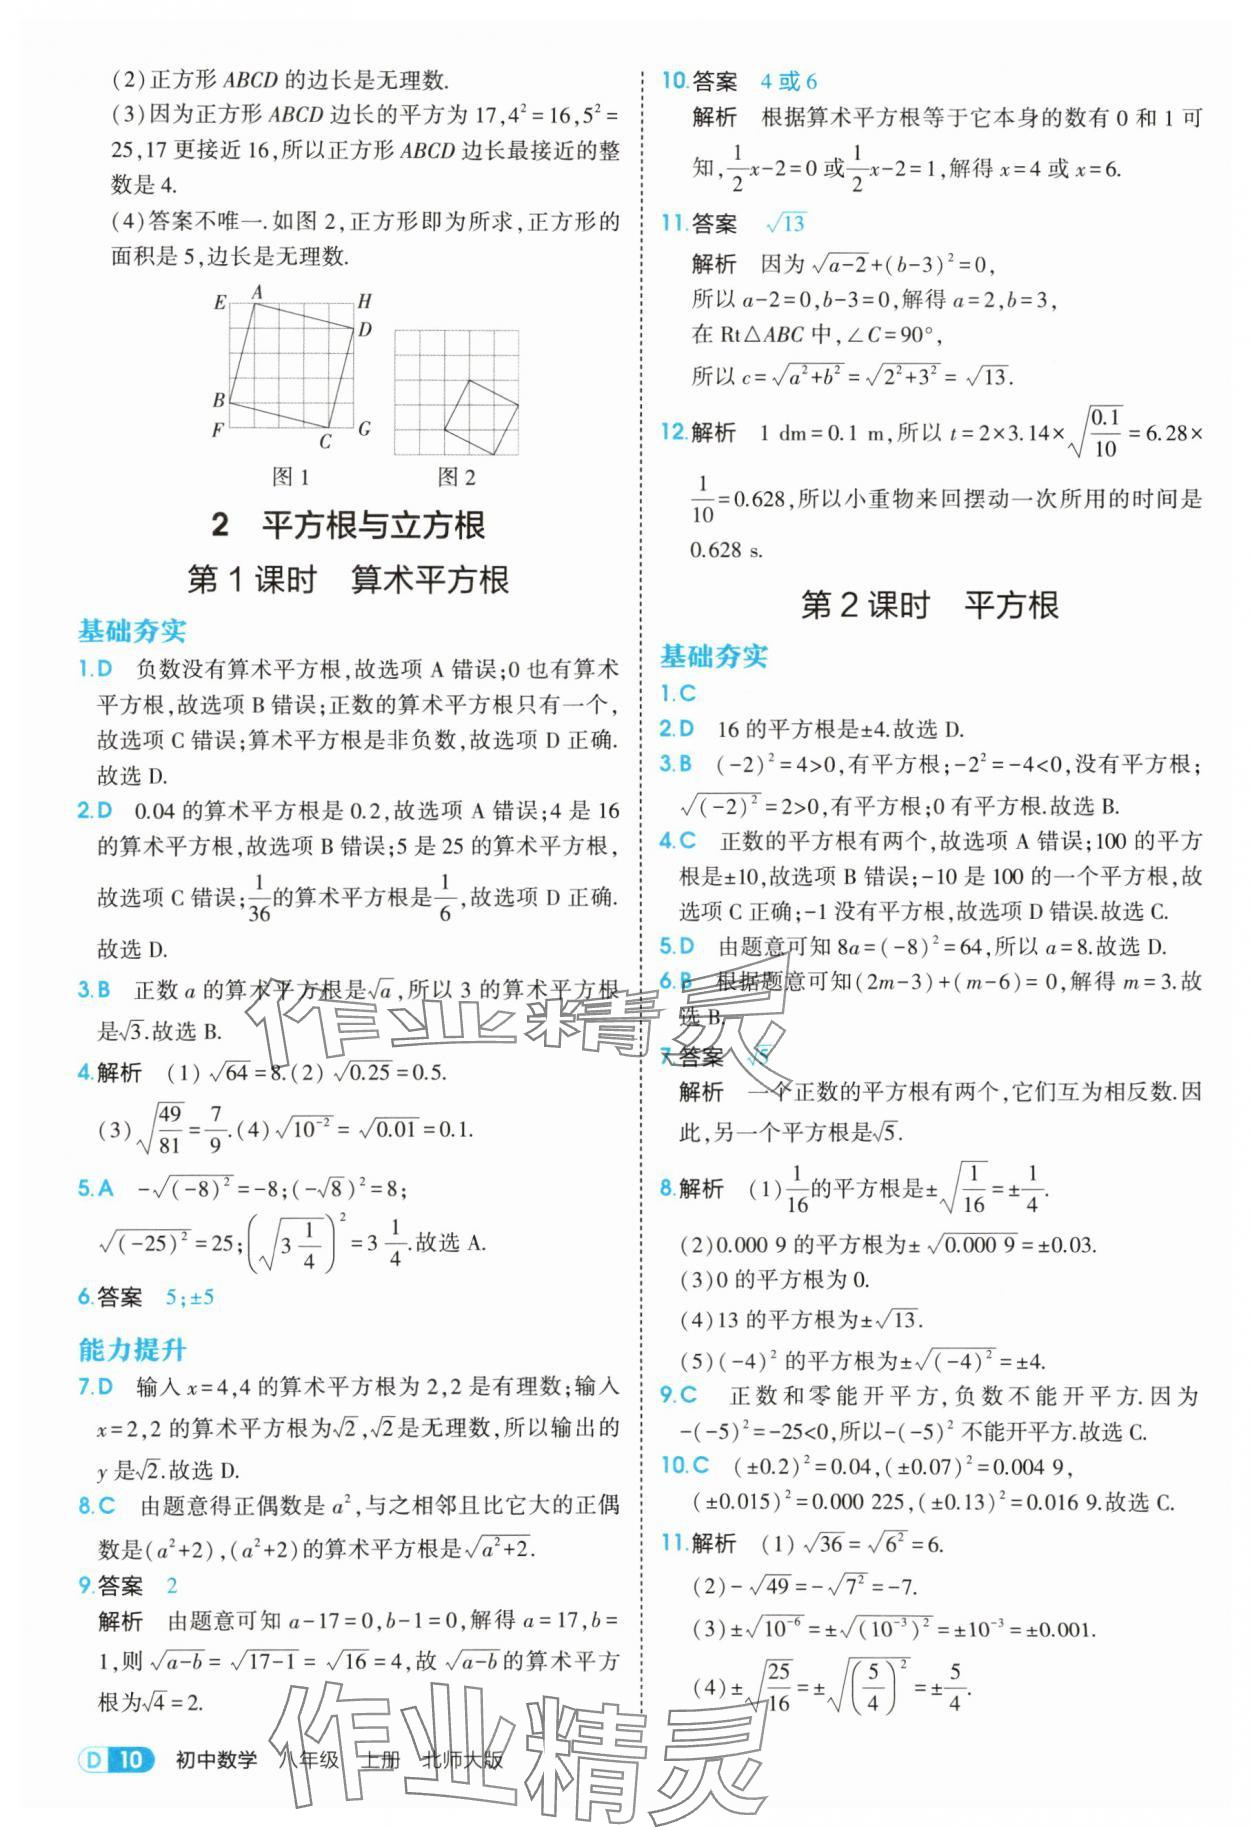 (2)正方形 ABCD 的边长是无理数.
(3)因为正方形 ABCD 边长的平方为 17,4²=16,5²=
25,17 更接近 16,所以正方形 ABCD 边长最接近的整
数是 4.
(4)答案不唯一.如图 2,正方形即为所求,正方形的
面积是 5,边长是无理数.
E A H
D
B
F C G
图 1 图 2
2 平方根与立方根
第 1 课时 算术平方根
基础夯实
1.D 负数没有算术平方根,故选项 A 错误;0 也有算术
平方根,故选项 B 错误;正数的算术平方根只有一个,
故选项 C 错误;算术平方根是非负数,故选项 D 正确.
故选 D.
2.D 0.04 的算术平方根是 0.2,故选项 A 错误;4 是 16
的算术平方根,故选项 B 错误;5 是 25 的算术平方根,
故选项 C 错误;1/36的算术平方根是1/6,故选项 D 正确.
故选 D.
3.B 正数 a 的算术平方根是√a,所以 3 的算术平方根
是√3.故选 B.
4.解析 (1)√64=8.(2)√0.25=0.5.
(3)√(49/81)=7/9.(4)√(10⁻²)=√0.01=0.1.
5.A -√((-8)²)=-8;(-√8)²=8;
√((-25)²)=25;(√(3 1/4))²=3 1/4.故选 A.
6.答案 5;±5
能力提升
7.D 输入 x=4,4 的算术平方根为 2,2 是有理数;输入
x=2,2 的算术平方根为√2,√2是无理数,所以输出的
y 是√2.故选 D.
8.C 由题意得正偶数是 a²,与之相邻且比它大的正偶
数是(a²+2),(a²+2)的算术平方根是√(a²+2).
9.答案 2
解析 由题意可知 a-17=0,b-1=0,解得 a=17,b=
1,则√(a-b)=√(17-1)=√16=4,故√(a-b)的算术平方
根为√4=2.
D 10 初中数学 八年级 上册 北师大版
10.答案 4 或 6
解析 根据算术平方根等于它本身的数有 0 和 1 可
知,1/2x-2=0 或1/2x-2=1,解得 x=4 或 x=6.
11.答案 √13
解析 因为√(a-2)+(b-3)²=0,
所以 a-2=0,b-3=0,解得 a=2,b=3,
在 Rt△ABC 中,∠C=90°,
所以 c=√(a²+b²)=√(2²+3²)=√13.
12.解析 1 dm=0.1 m,所以 t=2×3.14×√(0.1/10)=6.28×
1/10=0.628,所以小重物来回摆动一次所用的时间是
0.628 s.
第 2 课时 平方根
基础夯实
1.C
2.D 16 的平方根是±4.故选 D.
3.B (-2)²=4>0,有平方根;-2²=-4<0,没有平方根;
√((-2)²)=2>0,有平方根;0 有平方根.故选 B.
4.C 正数的平方根有两个,故选项 A 错误;100 的平方
根是±10,故选项 B 错误;-10 是 100 的一个平方根,故
选项 C 正确;-1 没有平方根,故选项 D 错误.故选 C.
5.D 由题意可知 8a=(-8)²=64,所以 a=8.故选 D.
6.B 根据题意可知(2m-3)+(m-6)=0,解得 m=3.故
选 B.
7.答案 √5
解析 一个正数的平方根有两个,它们互为相反数.因
此,另一个平方根是√5.
8.解析 (1)1/16的平方根是±√(1/16)=±1/4.
(2)0.000 9 的平方根为±√0.000 9=±0.03.
(3)0 的平方根为 0.
(4)13 的平方根为±√13.
(5)(-4)² 的平方根为±√((-4)²)=±4.
9.C 正数和零能开平方,负数不能开平方.因为
-(-5)²=-25<0,所以-(-5)² 不能开平方.故选 C.
10.C (±0.2)²=0.04,(±0.07)²=0.004 9,
(±0.015)²=0.000 225,(±0.13)²=0.016 9.故选 C.
11.解析 (1)√36=√(6²)=6.
(2)-√49=-√(7²)=-7.
(3)±√(10⁻⁶)=±√((10⁻³)²)=±10⁻³=±0.001.
(4)±√(25/16)=±√((5/4)²)=±5/4.
作业精灵
作业精灵